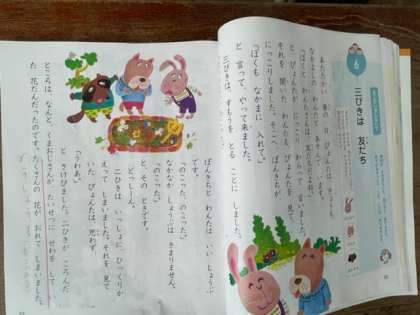 6
三びきは 友だち
あたたかい 春の 日、ぴょんたは
なかよしの わんたと あそんで います。
と、ぴょんたが にっこり わらって 言いました。
それを 聞いた わんたも、ぴょんたを 見て
にっこりしました。そこへ ぽんきちが
「ぼくも なかまに 入れて。」
と 言って、やって 来ました。
三びきは、すもうを とる ことに しました。
ぽんきちと わんたは いい しょうぶ
です。
「のこった、のこった。」
なかなか しょうぶは きまりません。
と、その ときです。
どっしーん。
二ひきは いっしょに、ひっくりか
えって しまいました。それを 見て
いた ぴょんたは 思わず、
「うわあ。」
と さけびました。二ひきが ころんだ
ところは、なんと、くまおじさんが、たいせつに せわを して い
た 花だんだったのです。たくさんの 花が おれて しまいました。